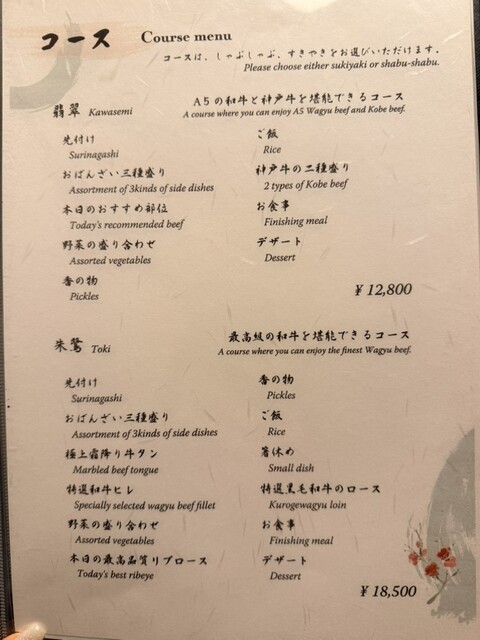 コース Course menu
コースは、しゃぶしゃぶ、すきやきをお選びいただけます。
Please choose either sukiyaki or shabu-shabu.
翡翠 Kawasemi
A5の和牛と神戸牛を堪能できるコース
A course where you can enjoy A5 Wagyu beef and Kobe beef.
先付け
Surinagashi
おばんざい三種盛り
Assortment of 3kinds of side dishes
本日のおすすめ部位
Today's recommended beef
野菜の盛り合わせ
Assorted vegetables
香の物
Pickles
ご飯
Rice
神戸牛の二種盛り
2 types of Kobe beef
お食事
Finishing meal
デザート
Dessert
¥ 12,800
朱鷺 Toki
最高級の和牛を堪能できるコース
A course where you can enjoy the finest Wagyu beef.
先付け
Surinagashi
おばんざい三種盛り
Assortment of 3kinds of side dishes
極上霜降り牛タン
Marbled beef tongue
特選和牛ヒレ
Specially selected wagyu beef fillet
野菜の盛り合わせ
Assorted vegetables
本日の最高品質リブロース
Today's best ribeye
香の物
Pickles
ご飯
Rice
箸休め
Small dish
特選黒毛和牛のロース
Kurogewagyu loin
お食事
Finishing meal
デザート
Dessert
¥ 18,500